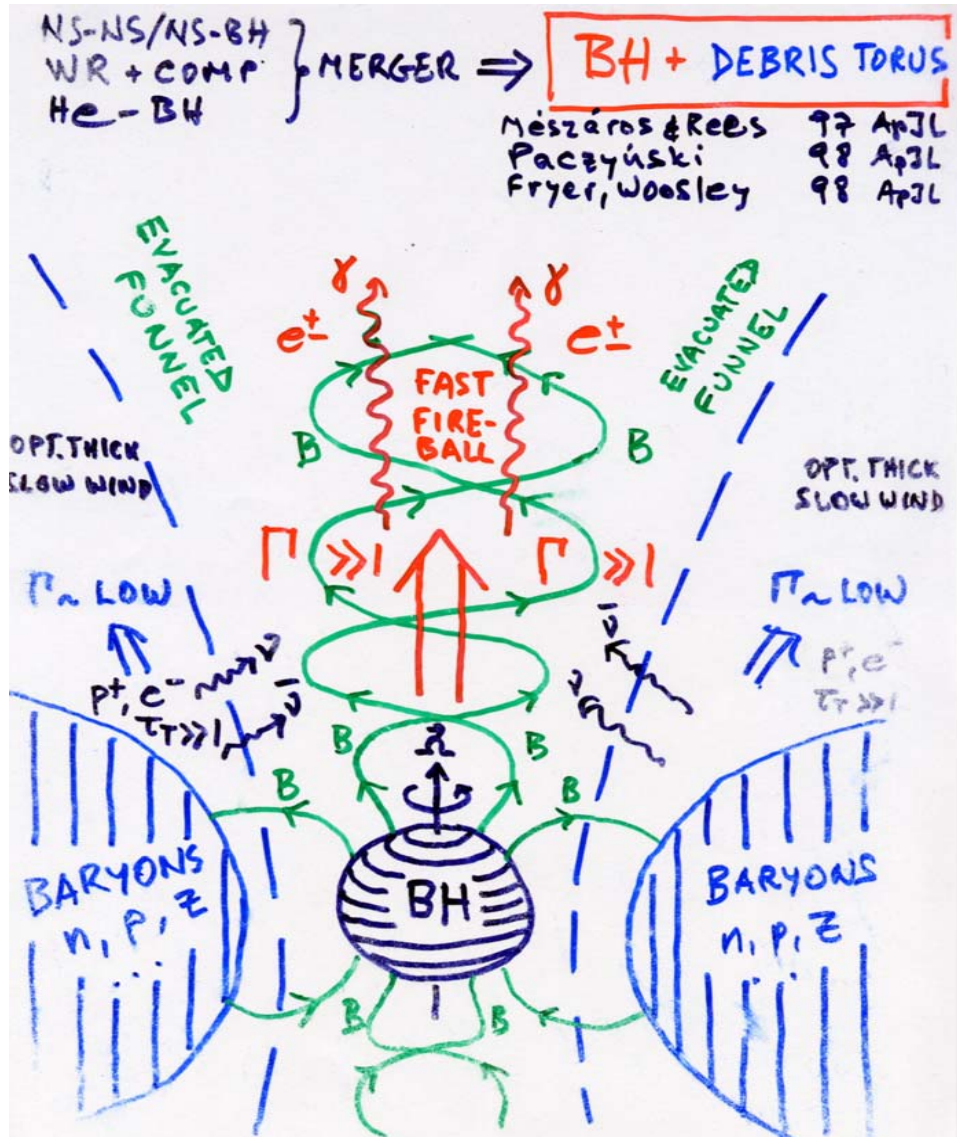 NS-NS/NS-BH
WR + COMP
He-BH
} MERGER ⇒
BH + DEBRIS TORUS
Mészáros & Rees 97 ApJL
Paczyński 98 ApJL
Fryer, Woosley 98 ApJL
EVACUATED
FUNNEL
EVACUATED
FUNNEL
γ
γ
e±
e±
FAST
FIRE-
BALL
B
B
OPT. THICK
SLOW WIND
OPT. THICK
SLOW WIND
Γ ≫ 1
Γ ≫ 1
Γ ~ LOW
Γ ~ LOW
p⁺, e⁻
τ_T ≫ 1
ν
ν̄
ν̄
ν
p⁺, e⁻
τ_T ≫ 1
B
Ω
B
B
B
BARYONS
n, p, Z
...
BH
BARYONS
n, p, Z
...
B
B